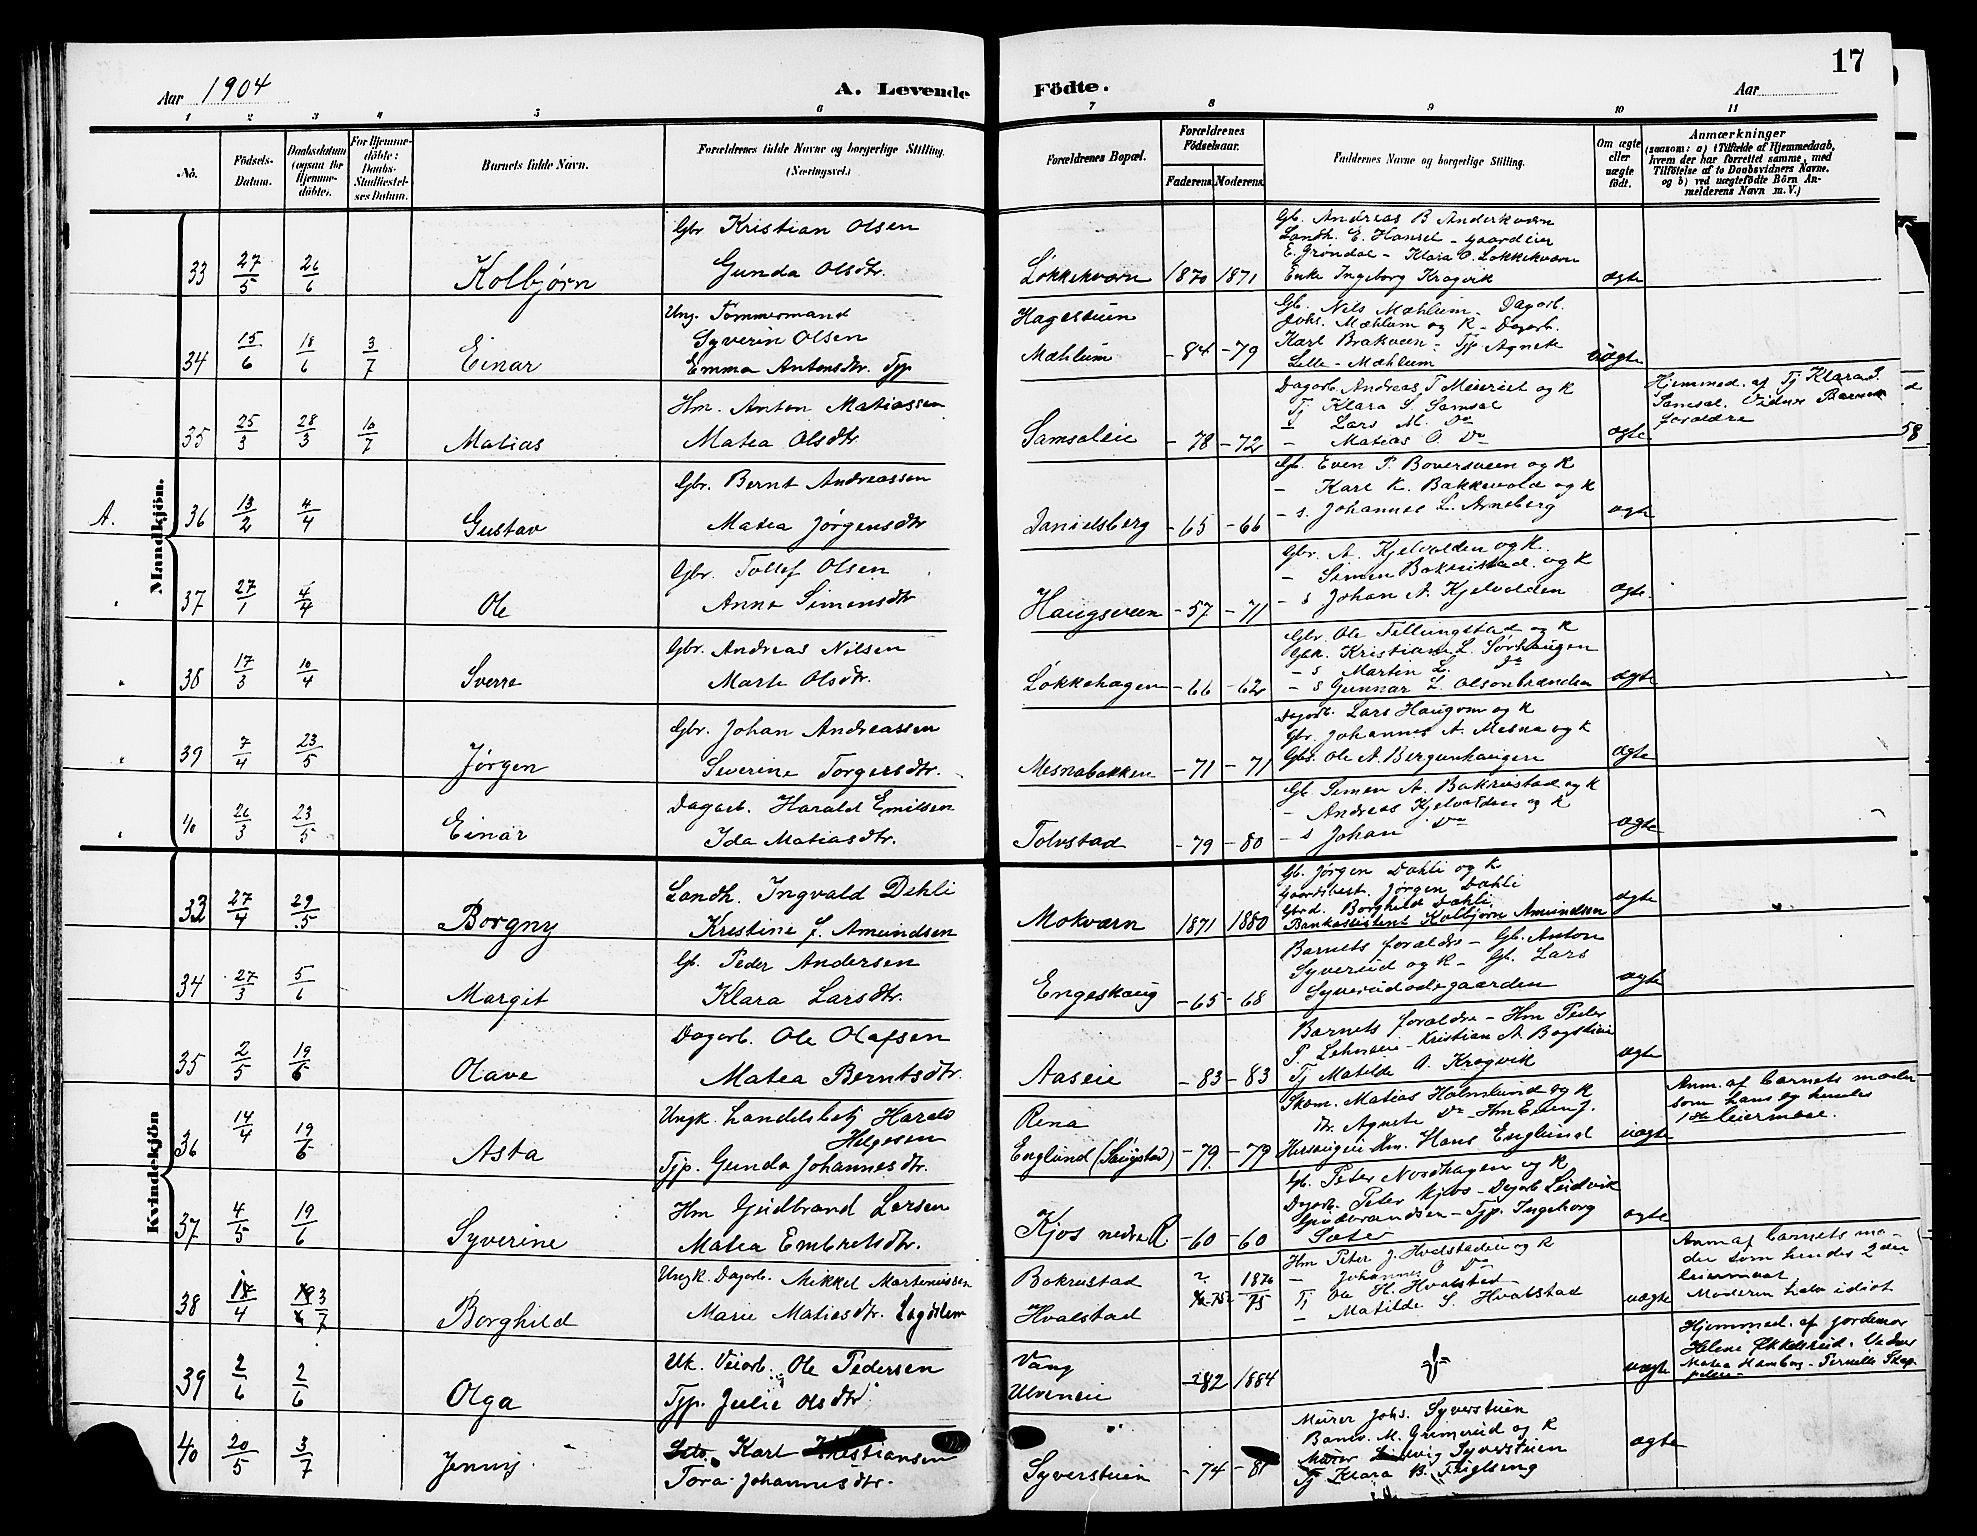 17
Aar 1904
A. Levende Födte.
Aar
1 2 3 4 5 6 7 8 9 10 11
No.
Födsels-Datum.
Daabsdatum (ogsaa for Hjemme-döbte).
For Hjemme-döbte: Daabs-Stadfæstel-ses Datum.
Barnets fulde Navn.
Forældrenes fulde Navne og borgerlige Stilling. (Næringsvei.)
Forældrenes Bopæl.
Forældrenes Födselsaar.
Faderens Moderens
Faddernes Navne og borgerlige Stilling.
Om ægte eller uægte födt.
Anmærkninger
(saasom: a) i Tilfælde af Hjemmedaab,
hvem der har forrettet samme, med
Tilföielse af to Daabsvidners Navne,
og b) ved uægtefödte Börn An-
melderens Navn m. V.)
Mandkjön.
33 27/5 26/6 Kolbjørn
Gbr Kristian Olsen
Gunda Olsdtr.
Løkkekvern 1870 1871
Gb. Andreas B Anderkvern
Landh. E. Hansel - Gaardeier
E. Grøndal - Klara O. Løkkekvern
Enke Ingeborg Krogvik
ægte
34 15/6 18/6 3/7 Einar
Ung. Tømmermand
Syverin Olsen
Emma Antonsdtr. Tjp
Hagestuen
Mæhlum - 84 - 79
Gb. Nils Mæhlum - Dagarb.
Johs. Mæhlum og K - Dagarb.
Karl Brakveen - Tjp Agnete
Lille-Mæhlum
uægte
35 25/3 28/3 10/7 Matias
Hm. Anton Matiassen
Matea Olsdtr
Samsaleie - 78 - 72
Dagarb. Andreas T Meieriet og K
Tj Klara S. Samsal
- Lars M. Do
- Matias O. Do
ægte
Hjemmed. af Tj Klara S.
Samsal. Vidner Barnets
forældre
A. 36 13/2 4/4 Gustav
Gbr. Bernt Andreassen
Matea Jørgensdtr
Danielsberg - 65 - 66
Gb. Even P. Boversveen og K
- Karl K. Bakkevold og K
- s. Johannes L. Arneberg
ægte
37 27/1 4/4 Ole
Gbr. Tollef Olsen
Anne Simensdtr
Haugsveen - 57 - 71
Gbr. A. Kjelvolden og K.
- Simen Bakrustad og K
- s Johan A. Kjelvolden
ægte
38 17/3 10/4 Sverre
Gbr. Andreas Nilsen
Marte Olsdtr.
Løkkehagen - 66 - 62
Gbr. Ole Fillungstad og K
Gbk. Kristiane L. Sørhaugen
- s Martin L. Do
- s Gunnar L. Olsenbrænden
ægte
39 7/4 23/5 Jørgen
Gbr. Johan Andreassen
Severine Torgersdtr.
Mesnabakken - 71 - 71
Dagarb. Lars Haugom og K
Gbr. Johannes A. Mesna og K
Gbs. Ole A. Bergenhaugen
ægte
40 26/3 23/5 Einar
Dagarb. Harald Emilsen
Ida Matiasdtr.
Tolvstad - 79 - 80
Gb. Simen A. Bakrustad og K
- Andreas Kjelvolden og K
- s Johan Do
ægte
Kvindekjön
33 27/4 29/5 Borgny
Landh. Ingvald Dehli
Kristine f. Amundsen
Mokvern 1871 1880
Gb. Jørgen Dahli og K
Gaardbest. Jørgen Dahli
Gbrd. Borghild Dahli.
Bankassistent Kolbjørn Amundsen
ægte
34 27/3 5/6 Margit
Gb. Peder Andersen
Klara Larsdtr.
Engeskaug - 65 - 68
Barnets forældre - Gb. Anton
Syverud og K - Gb. Lars
Syverudødegaarden
ægte
35 2/5 19/6 Olave
Dagarb. Ole Olafsen
Matea Berntsdtr.
Aaseie - 83 - 83
Barnets forældre - Hm Peder
P. Lehnseie - Kristian A Bogstieie
Tj Matilde O. Krogvik
ægte
36 14/4 19/6 Asta
Ungk. Handelsbetj Harald
Helgesen
Tjp. Gunda Johannesdtr.
Rena
Englund (Saugstad) - 79. - 79
Skom. Matias Holmlund og K
dtr. Agnete Do - Hm Even J.
Hersaugeie Hm. Hans Englund
uægte
Anm. af barnets moder
som hans og hendes
1ste leiermaal.
37 4/5 19/6 Syverine
Hm Gudbrand Larsen
Matea Embretsdtr.
Kjos nedre R - 60 - 60
Gb. Peter Nordhagen og K
Dagarb. Peter Kjos - Dagarb Ludvik
Gudbrandsen - Tjp. Ingeborg
Sæter
ægte
38 17/4 3/7 Borghild
Ungk. Dagarb. Mikkel Martinussen
Marie Matiasdtr. Lægdslem
Bakrustad
Hvalstad
1876
75
Hm Peter J. Hvalstadeie og K
- Johannes O Do
Tj Ole H. Hvalstad
- Matilde S. Hvalstad
uægte
Anm af barnets mo-
der som hendes 2det
leiermaal
Moderen halv idiot
39 2/6 2/6 Olga
Uk. Veiarb. Ole Pedersen
Tjp. Julie Olsdtr
Vang
Ulveneie - 82 1884
uægte
Hjemmed. af jordemor
Helene Ekkelsrud. Vidner
Matea Hamberg - Pernille Skap-
pelen
40 20/5 3/7 Jenny
Karl Kristiansen
Tora Johannesdtr.
Syverstuen - 74 - 81
Murer Johs. Syverstuen
Banev. M. Grimsrud og K
Murer Ludvig Syverstuen
Tj Klara B.
ægte
58